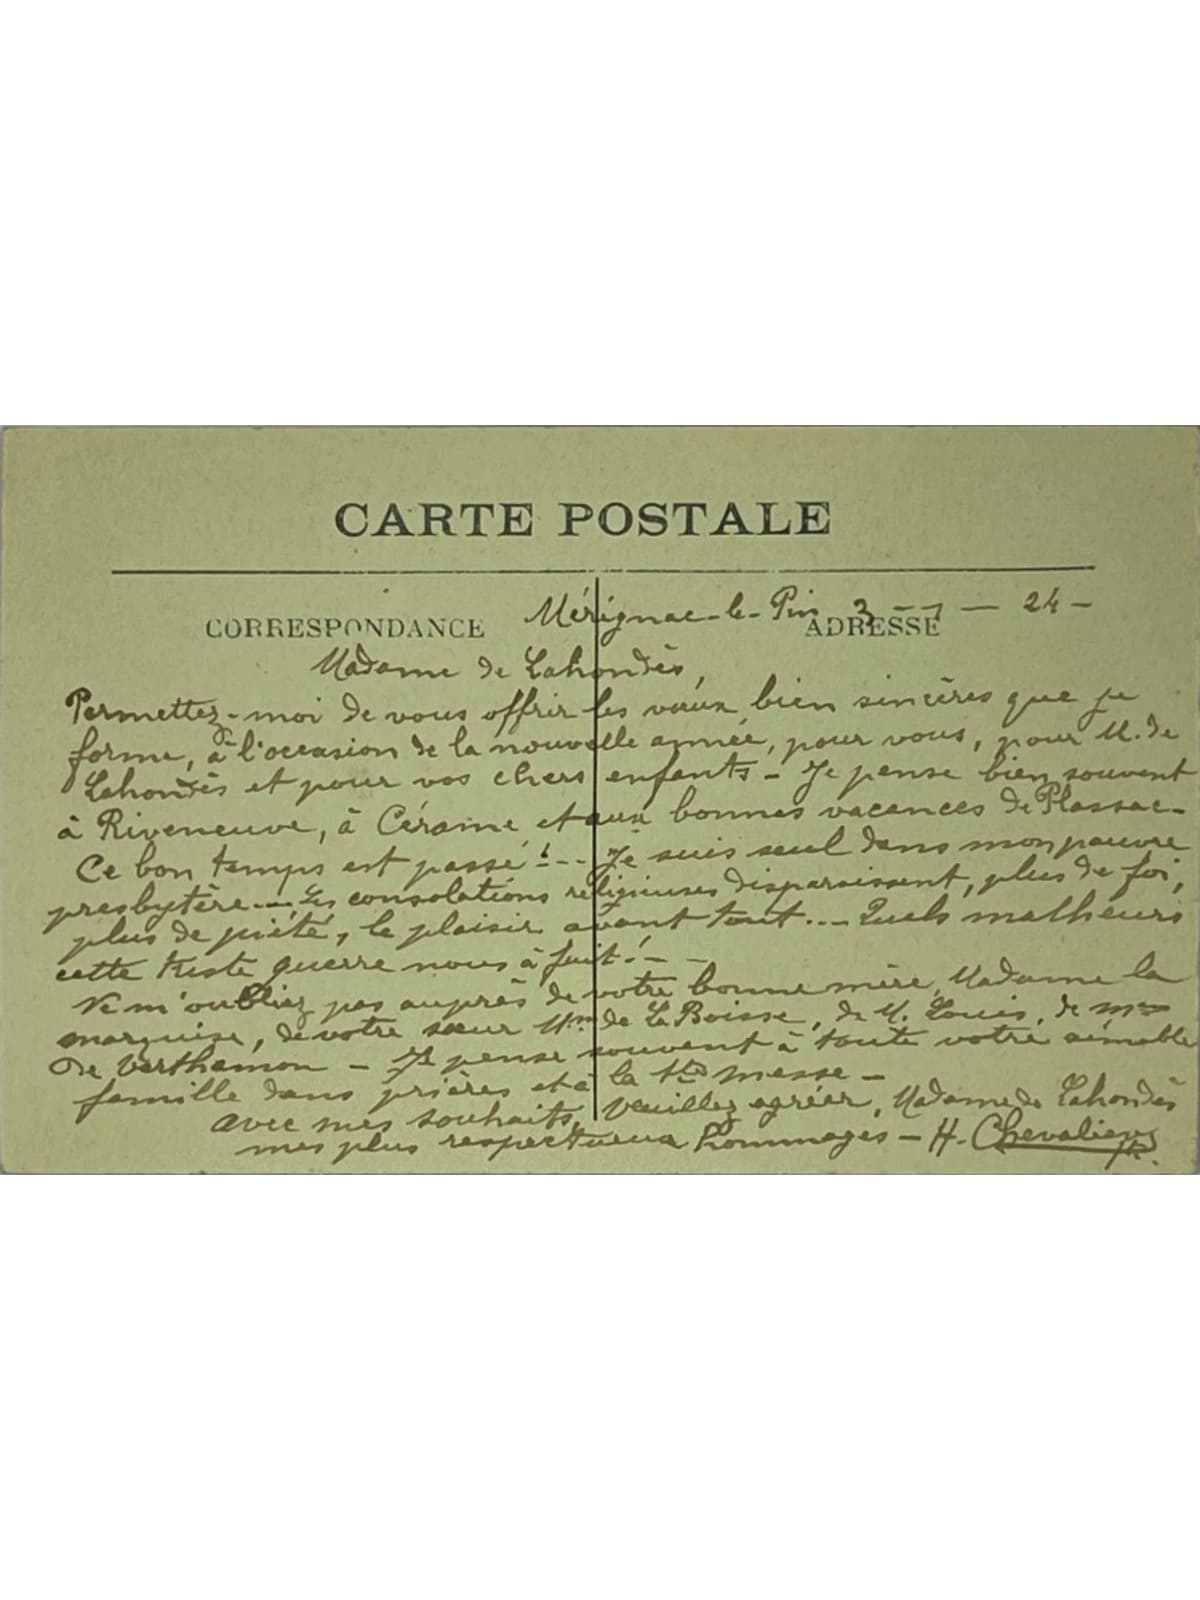 CARTE POSTALE
CORRESPONDANCE
ADRESSE
Mérignac-le-Pin 3 - 1 - 24 -
Madame de Lahondès,
Permettez-moi de vous offrir les vœux bien sincères que je
forme, à l'occasion de la nouvelle année, pour vous, pour M. de
Lahondès et pour vos chers enfants - Je pense bien souvent
à Riveneuve, à Cérame et aux bonnes vacances de Plassac -
Ce bon temps est passé !.. Je suis seul dans mon pauvre
presbytère - Les consolations religieuses disparaissent, plus de foi,
plus de piété, le plaisir avant tout... Quels malheurs
cette triste guerre nous a fait ! - -
Ne m'oubliez pas auprès de votre bonne mère, Madame la
marquise, de votre sœur Mme de La Boisse, de M. Louis, de Mme
de Verthamon - Je pense souvent à toute votre aimable
famille dans prières et à la Ste messe -
avec mes souhaits, veuillez agréer, Madame de Lahondès
mes plus respectueux hommages - H. Chevalier